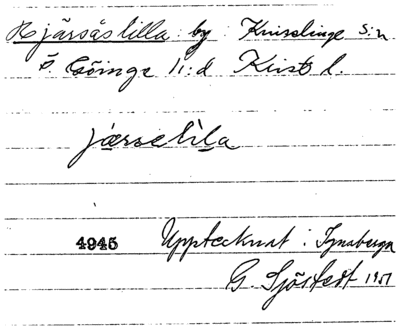 Hjärsåslilla by Knisslinge s:n
Ö. Göinge h:d Krist l.
jærselila
4945 Upptecknat i Synaberga
G. Sjöstedt 1951